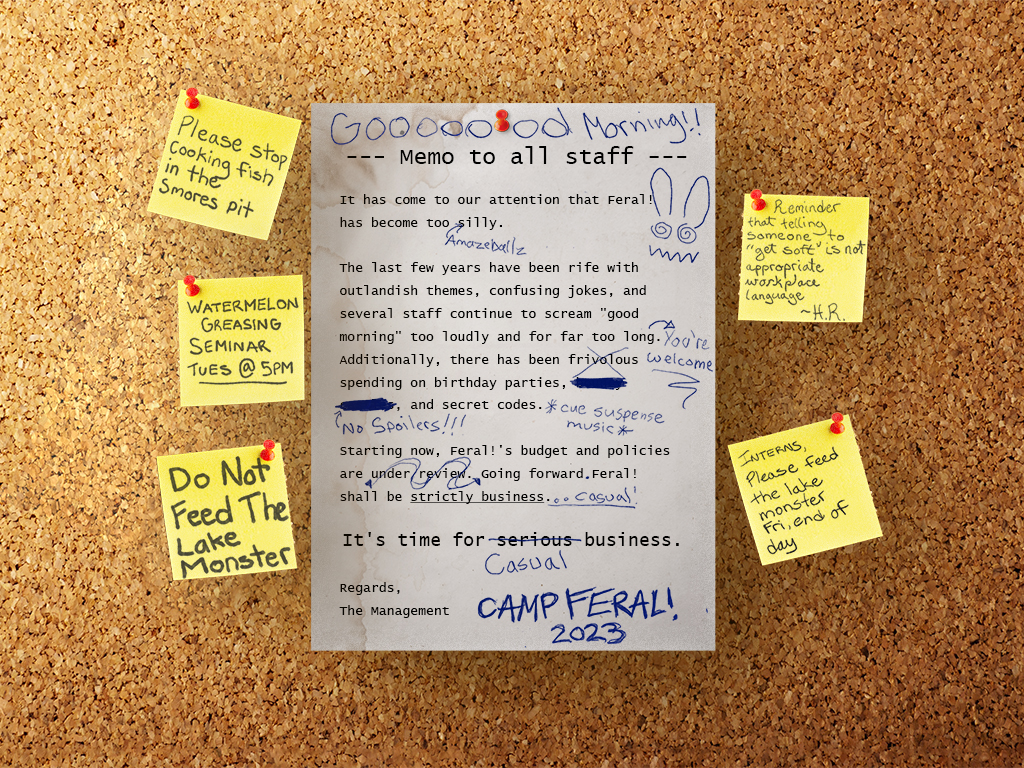 Please stop
Cooking fish
in the
Smores pit
WATERMELON
GREASING
SEMINAR
TUES @ 5PM
Do Not
Feed The
Lake
Monster
Goooooood Morning!!
--- Memo to all staff ---
It has come to our attention that Feral!
has become too silly.
Amazeballz
The last few years have been rife with
outlandish themes, confusing jokes, and
several staff continue to scream "good
morning" too loudly and for far too long.
You're
welcome
Additionally, there has been frivolous
spending on birthday parties,
, and secret codes. *cue suspense
music*
No Spoilers!!!
Starting now, Feral!'s budget and policies
are under review. Going forward Feral!
shall be strictly business...casual!
It's time for serious business.
Casual
Regards,
The Management
CAMP FERAL!
2023
Reminder
that telling
someone to
"get soft" is not
appropriate
workplace
language
~H.R.
INTERNS,
Please feed
the lake
monster
Fri, end of
day